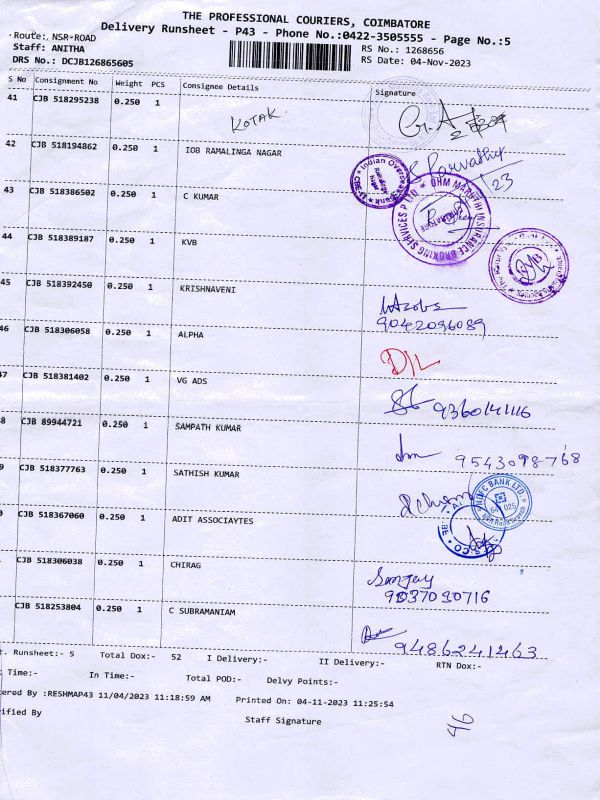 THE PROFESSIONAL COURIERS, COIMBATORE
Delivery Runsheet - P43 - Phone No.:0422-3505555 - Page No.:5
Route:. NSR-ROAD
Staff: ANITHA
RS No.: 1268656
DRS No.: DCJB126865605
RS Date: 04-Nov-2023
S No Consignment No Weight PCS Consignee Details Signature
41 CJB 518295238 0.250 1 KOTAK
42 CJB 518194862 0.250 1 IOB RAMALINGA NAGAR
43 CJB 518386502 0.250 1 C KUMAR
44 CJB 518389187 0.250 1 KVB
45 CJB 518392450 0.250 1 KRISHNAVENI
9042096089
46 CJB 518306058 0.250 1 ALPHA
47 CJB 518381402 0.250 1 VG ADS
9360141116
8 CJB 89944721 0.250 1 SAMPATH KUMAR
9543098768
9 CJB 518377763 0.250 1 SATHISH KUMAR
0 CJB 518367060 0.250 1 ADIT ASSOCIAYTES
CJB 518306038 0.250 1 CHIRAG
Sanjay
9037030716
CJB 518253804 0.250 1 C SUBRAMANIAM
9486241463
t. Runsheet:- 5 Total Dox:- 52 I Delivery:- II Delivery:- RTN Dox:-
Time:- In Time:- Total POD:- Delvy Points:-
ered By :RESHMAP43 11/04/2023 11:18:59 AM Printed On: 04-11-2023 11:25:54
rified By Staff Signature
46